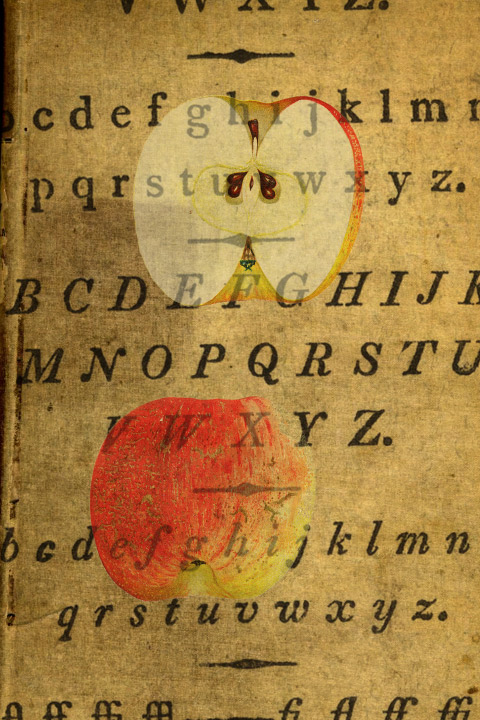 V W X Y Z.
b c d e f g h i j k l m n
p q r s t u v w x y z.
B C D E F G H I J K
M N O P Q R S T U
V W X Y Z.
b c d e f g h i j k l m n
q r s t u v w x y z.